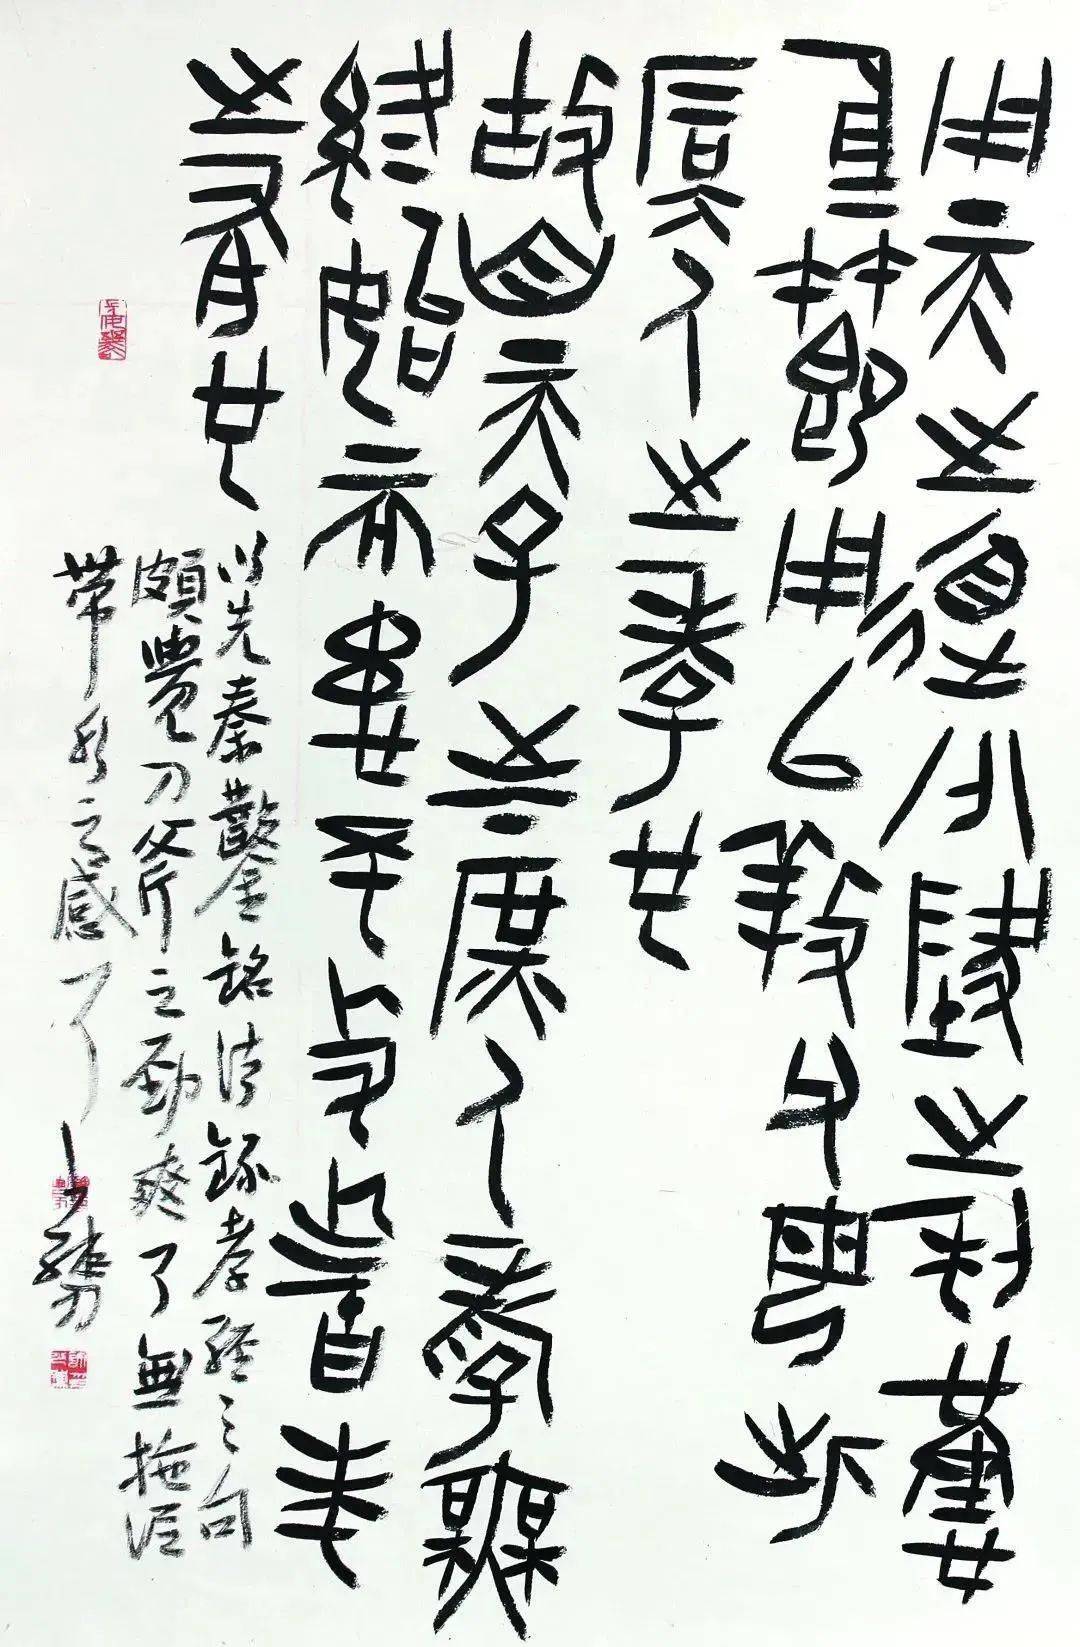 用天之道分地之利謹
身節用以養父母此
庶人之孝也
故自天子至庶人孝無
終始而患不及者未
之有也
以先秦鑿金銘法錄孝經之句
頗覺刀斧之勁爽了無拖泥
帶水之感了